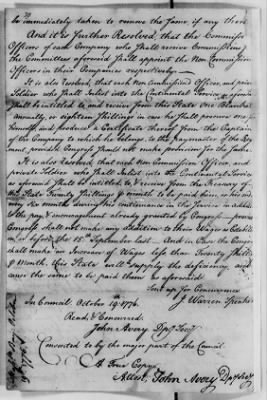 be immediately taken to remove the same if any there
And it is further Resolved, that the Commission
Officers of each Company who shall receive Commissions,
the Committees aforesaid shall appoint the Non Commission
Officers in their Companies respectively
It is also resolved that each Non Commissioned Officer, and private
Soldier who shall Inlist into the Continental Service as aforesaid
shall be intitled to and receive from this State one Blanket
annually, or eighteen Shillings in case he shall procure one
himself and produce a Certificate thereof from the Captain
of the Company to which he belongs to the paymaster of the
provided Congress shall not make provision for the same.
It is also Resolved that each Non Commission Officer, and
private Soldier who shall Inlist into the Continental Service
as aforesaid shall be intitled to & receive from the Treasury of
this State Twenty Shillings & month to be paid them, or his
every six months during his continuance in the Service in addition
to the pay & encouragement already granted by Congress
Congress shall not make any addition to their Wages as Establish
on or before the 15th September last And in Case the Congress
shall make an Increase of Wages less than Twenty Shill
& Month, this State will supply the deficiency, and
cause the same to be paid them as aforesaid
Sent up for Concurrence
J Warren Speaker
In Council October 19 1776
Read & Concurred
John Avery Dpy Secy
Consented to by the major part of the Council
A True Copy
Attest, John Avery Dpy Secy